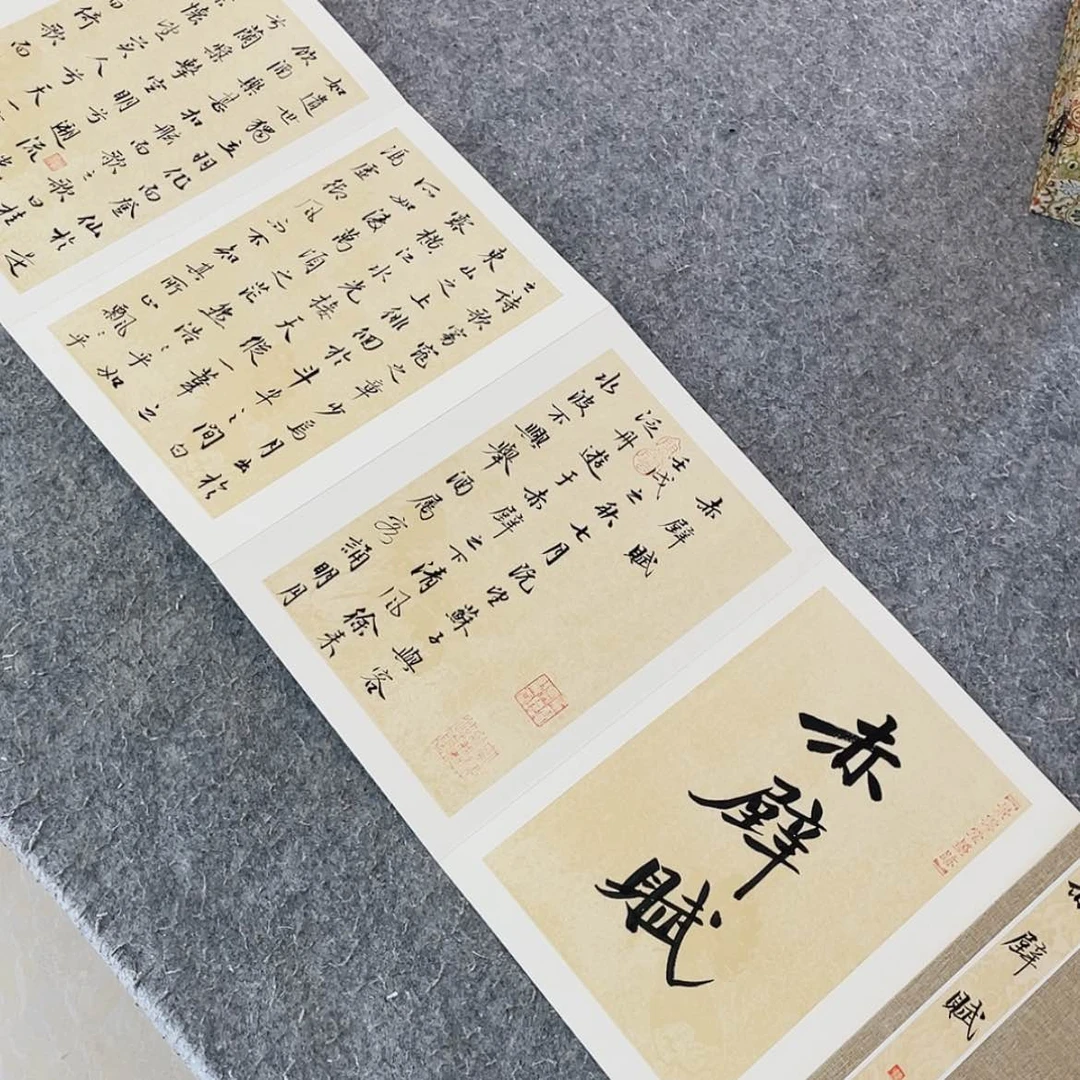 赤壁賦
壁賦
赤壁賦
壬戌之秋七月既望蘇子與客
泛舟遊于赤壁之下清風徐来
水波不興舉酒属客誦明月
之詩歌窈窕之章少焉月出於
東山之上徘徊於斗牛之間白
露橫江水光接天縱一葦之
所如凌萬頃之茫然浩〻乎如
馮虛御風而不知其所止飄〻乎
如遺世獨立羽化而登仙於是
飲酒樂甚扣舷而歌之歌曰桂
兮蘭槳擊空明兮遡流光
懷望美人兮天一
倚歌而